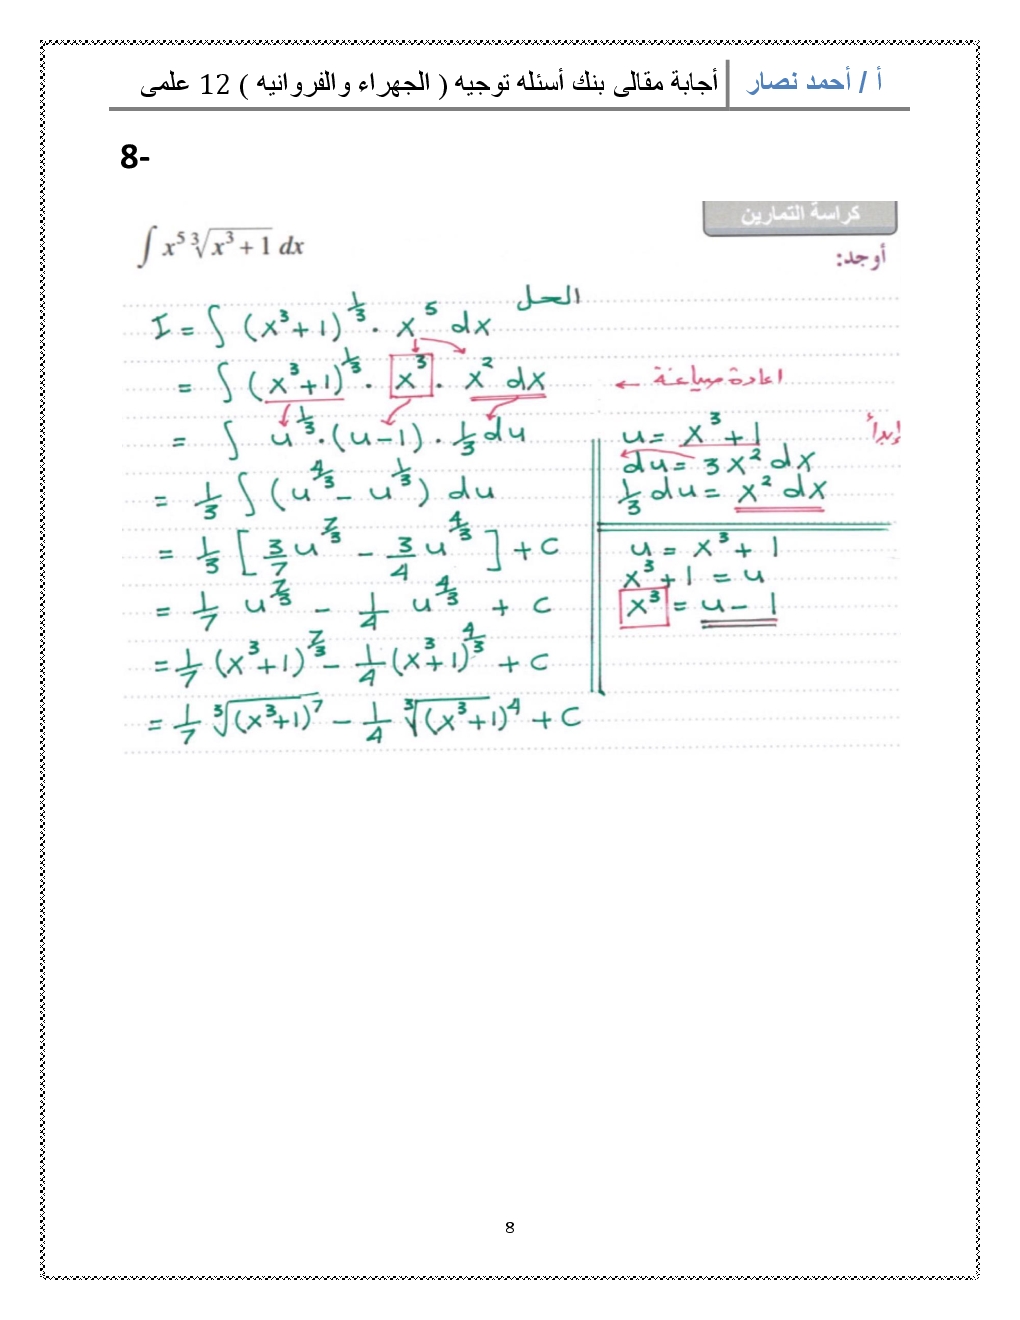 أ / أحمد نصار أجابة مقالى بنك أسئله توجيه ( الجهراء والفروانيه ) 12 علمى
8-
كراسة التمارين
أوجد:
∫ x⁵ ∛(x³ + 1) dx
الحل
I = ∫ (x³+1)^(1/3) · x⁵ dx
= ∫ (x³+1)^(1/3) · x³ · x² dx ← اعادة صياغة
= ∫ u^(1/3) · (u-1) · 1/3 du
= 1/3 ∫ (u^(4/3) - u^(1/3)) du
= 1/3 [ 3/7 u^(7/3) - 3/4 u^(4/3) ] + C
= 1/7 u^(7/3) - 1/4 u^(4/3) + C
= 1/7 (x³+1)^(7/3) - 1/4 (x³+1)^(4/3) + C
= 1/7 ∛(x³+1)⁷ - 1/4 ∛(x³+1)⁴ + C
إبدأ
u = x³+1
du = 3x² dx
1/3 du = x² dx
u = x³ + 1
x³+1 = u
x³ = u - 1
8